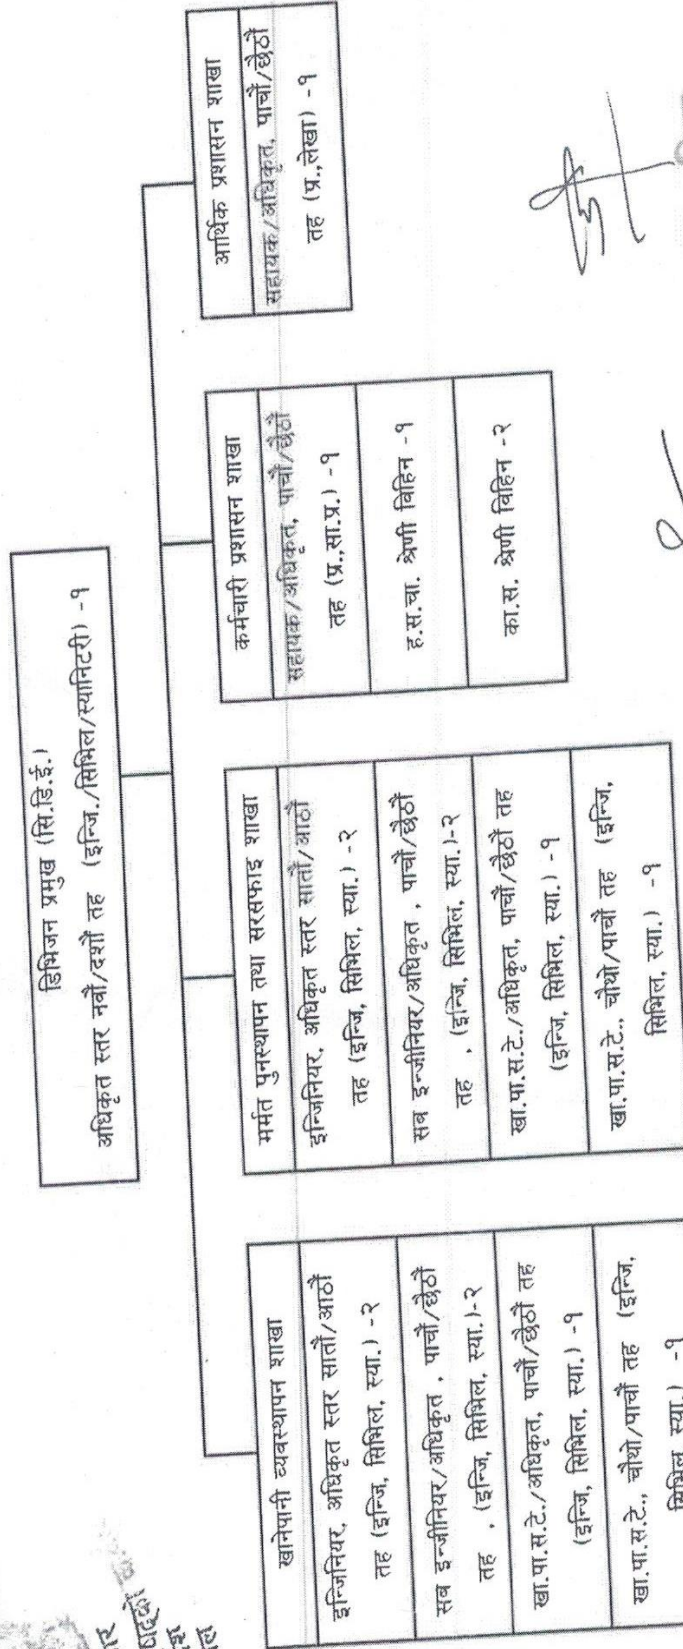 डिभिजन प्रमुख (सि.डि.ई.)
अधिकृत स्तर नवौं/दशौं तह (इन्जि./सिभिल/स्यानिटरी) -१
खानेपानी व्यवस्थापन शाखा
इन्जिनियर, अधिकृत स्तर सातौं/आठौं
तह (इन्जि, सिभिल, स्या.) -२
सब इन्जीनियर/अधिकृत , पाचौं/छैठौं
तह . (इन्जि, सिभिल, स्या.)-२
खा.पा.स.टे./अधिकृत, पाचौं/छैठौं तह
(इन्जि, सिभिल, स्या.) -१
खा.पा.स.टे., चौथो/पाचौं तह (इन्जि,
सिभिल, स्या.) -१
मर्मत पुनस्थापन तथा सरसफाइ शाखा
इन्जिनियर, अधिकृत स्तर सातौं/आठौं
तह (इन्जि, सिभिल, स्या.) -२
सब इन्जीनियर/अधिकृत , पाचौं/छैठौं
तह . (इन्जि, सिभिल, स्या.)-२
खा.पा.स.टे./अधिकृत, पाचौं/छैठौं तह
(इन्जि, सिभिल, स्या.) -१
खा.पा.स.टे., चौथो/पाचौं तह (इन्जि,
सिभिल, स्या.) -१
कर्मचारी प्रशासन शाखा
सहायक/अधिकृत, पाचौं/छैठौं
तह (प्र.,सा.प्र.) -१
ह.स.चा. श्रेणी विहिन -१
का.स. श्रेणी विहिन -२
आर्थिक प्रशासन शाखा
सहायक/अधिकृत, पाचौं/छैठौं
तह (प्र.,लेखा) -१